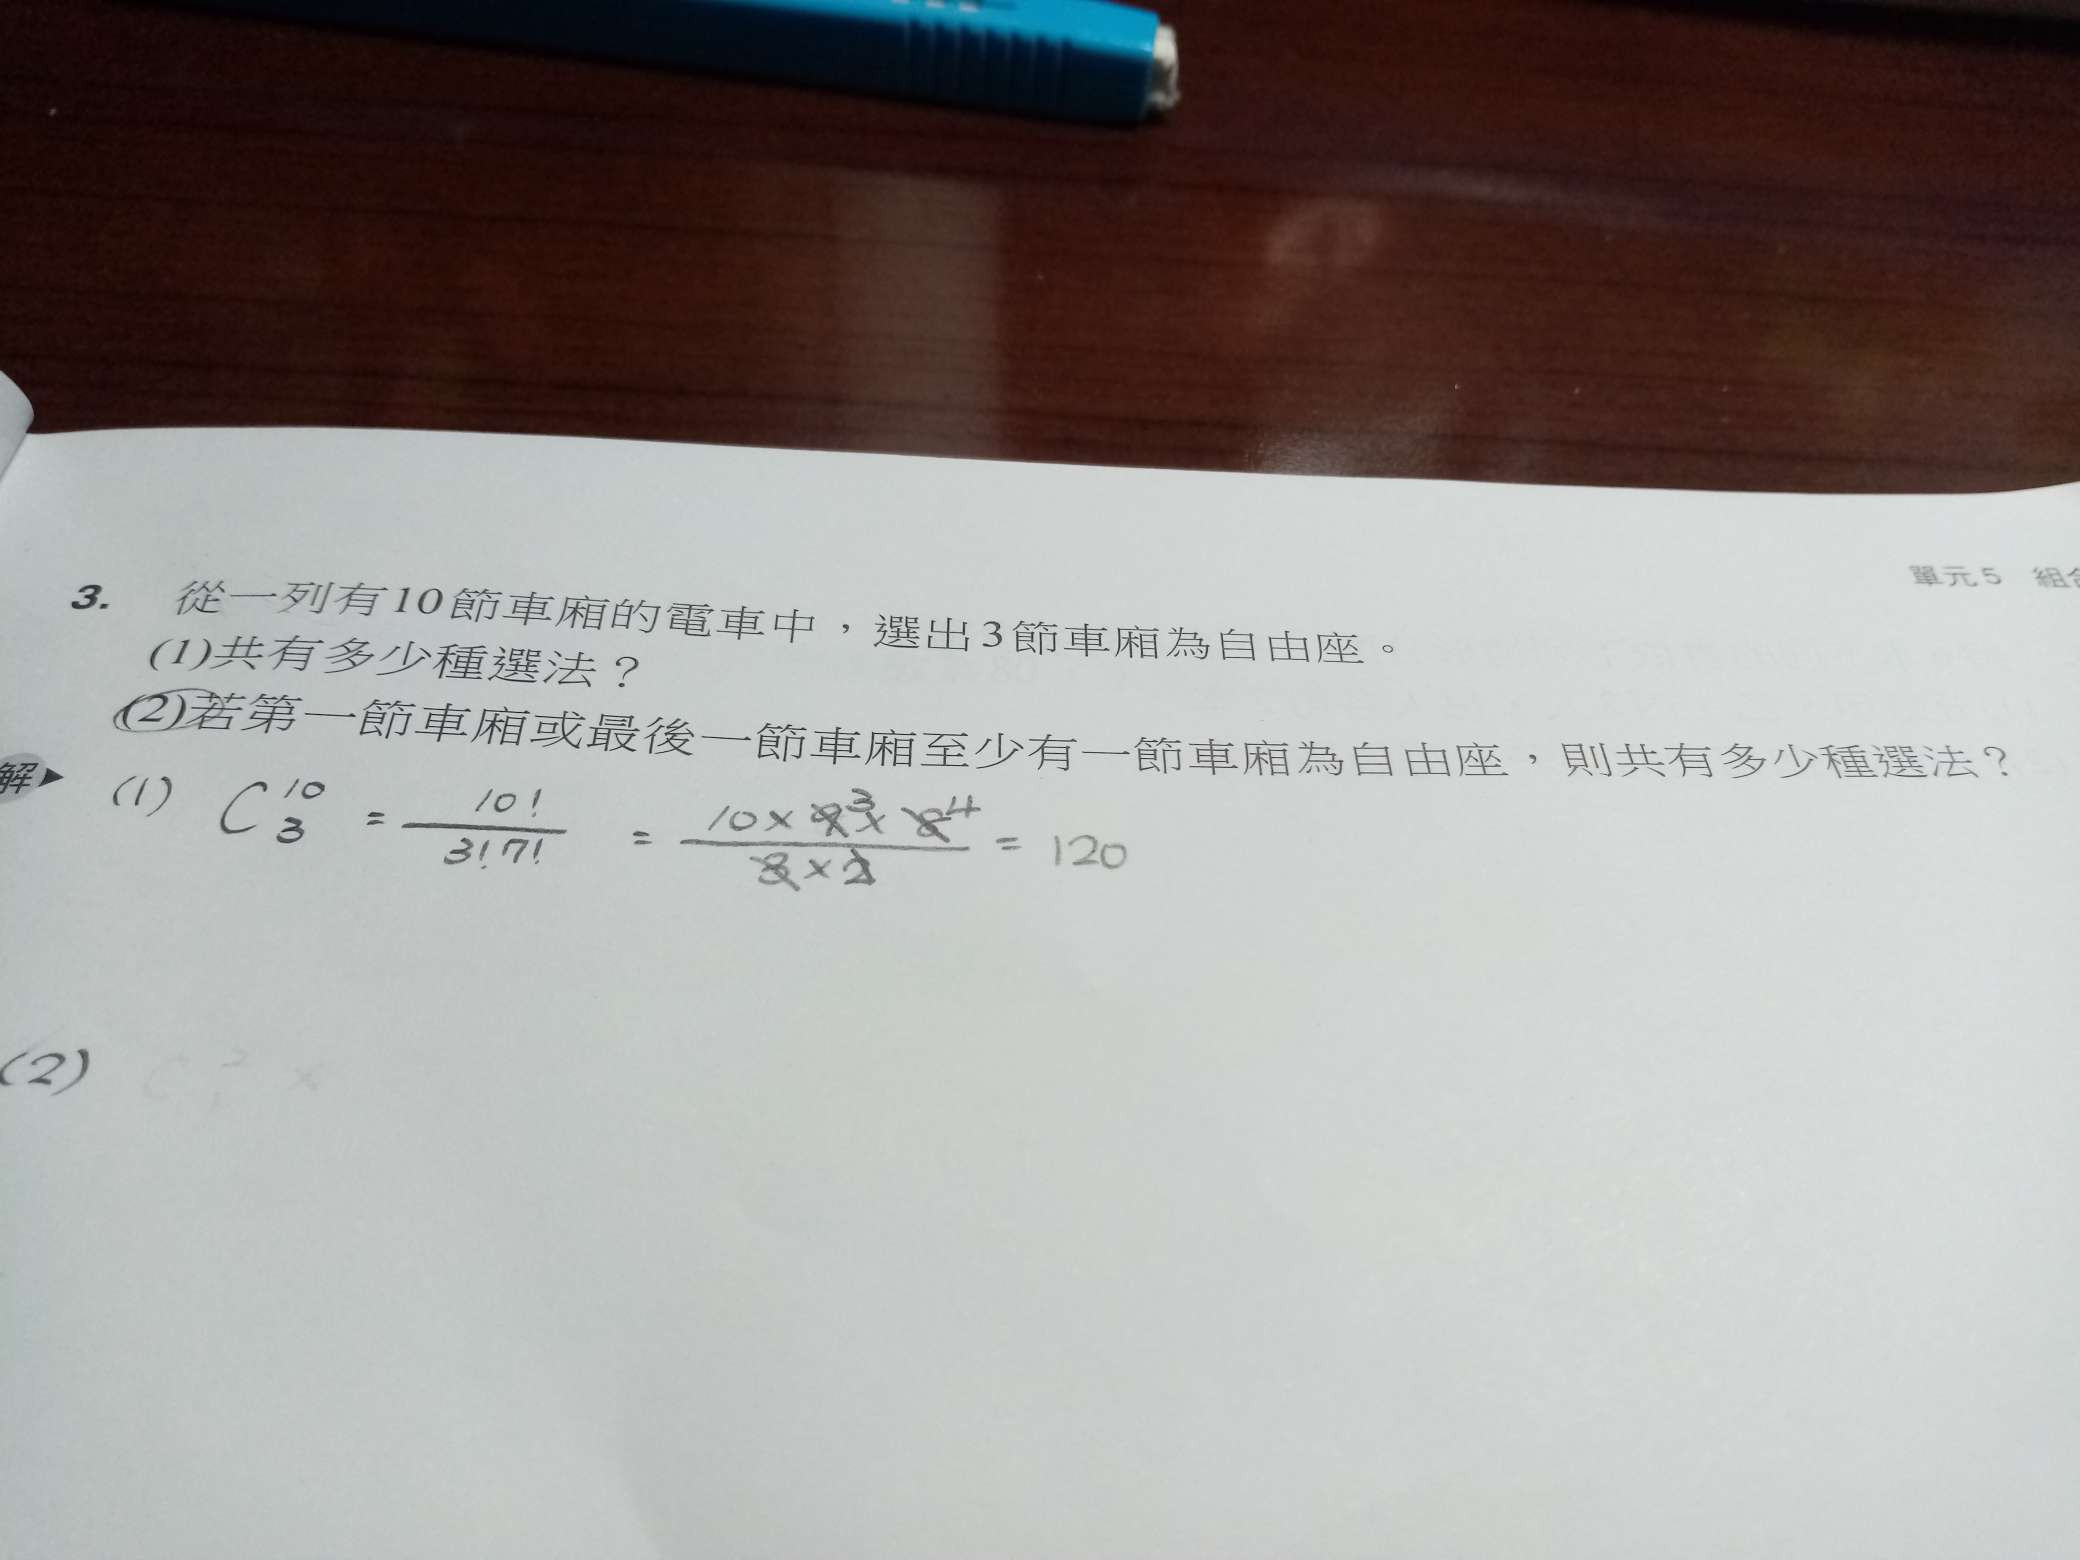 單元5 組合
3. 從一列有10節車廂的電車中，選出3節車廂為自由座。
(1)共有多少種選法？
(2)若第一節車廂或最後一節車廂至少有一節車廂為自由座，則共有多少種選法？
解▶ (1) C¹⁰₃ = 10! / 3!7! = 10 × 9³ × 8⁴ / 3 × 2 = 120
(2) C²₁ ×